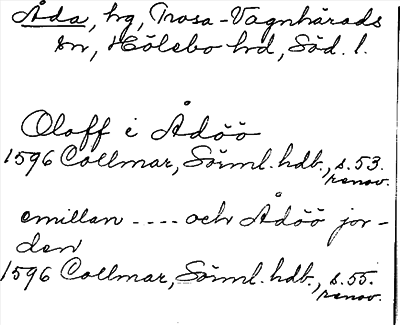 Åda, hg, Trosa-Vagnhärads
sn, Hölebo hd, Söd. l.
Oloff i Ådöö
1596 Collmar, Sörml. hdb., s. 53.
renov.
emillan .... och Ådöö jor-
den
1596 Collmar, Sörml. hdb., s. 55.
renov.